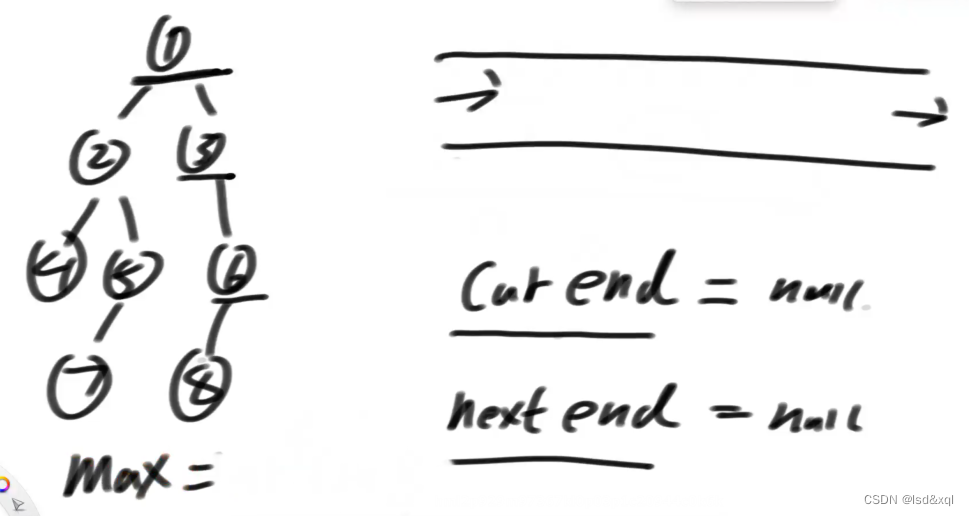 1
2 3
4 5 6
7 8
Max =
Cur end = null
next end = null
CSDN @lsd&xql